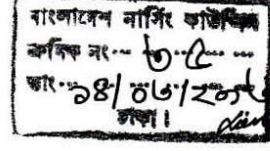 বাংলাদেশ নার্সিং কাউন্সিল
ক্রমিক নং... ৩৫ ...
তাং... ১৪/০৬/২০
ঢাকা।